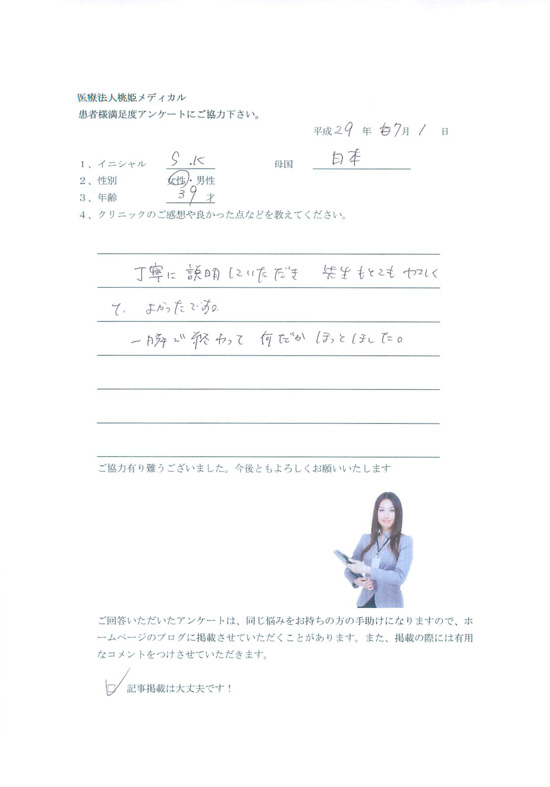 医療法人桃姫メディカル
患者様満足度アンケートにご協力下さい。
平成 29 年 7月 1 日
1、イニシャル S.K 母国 日本
2、性別 女性・男性
3、年齢 39 才
4、クリニックのご感想や良かった点などを教えてください。
丁寧に説明していただき 先生もとてもやさしく
て、よかったです。
一瞬で終わって 何だかほっとしました。
ご協力有り難うございました。今後ともよろしくお願いいたします
ご回答いただいたアンケートは、同じ悩みをお持ちの方の手助けになりますので、ホ
ームページのブログに掲載させていただくことがあります。また、掲載の際には有用
なコメントをつけさせていただきます。
記事掲載は大丈夫です！